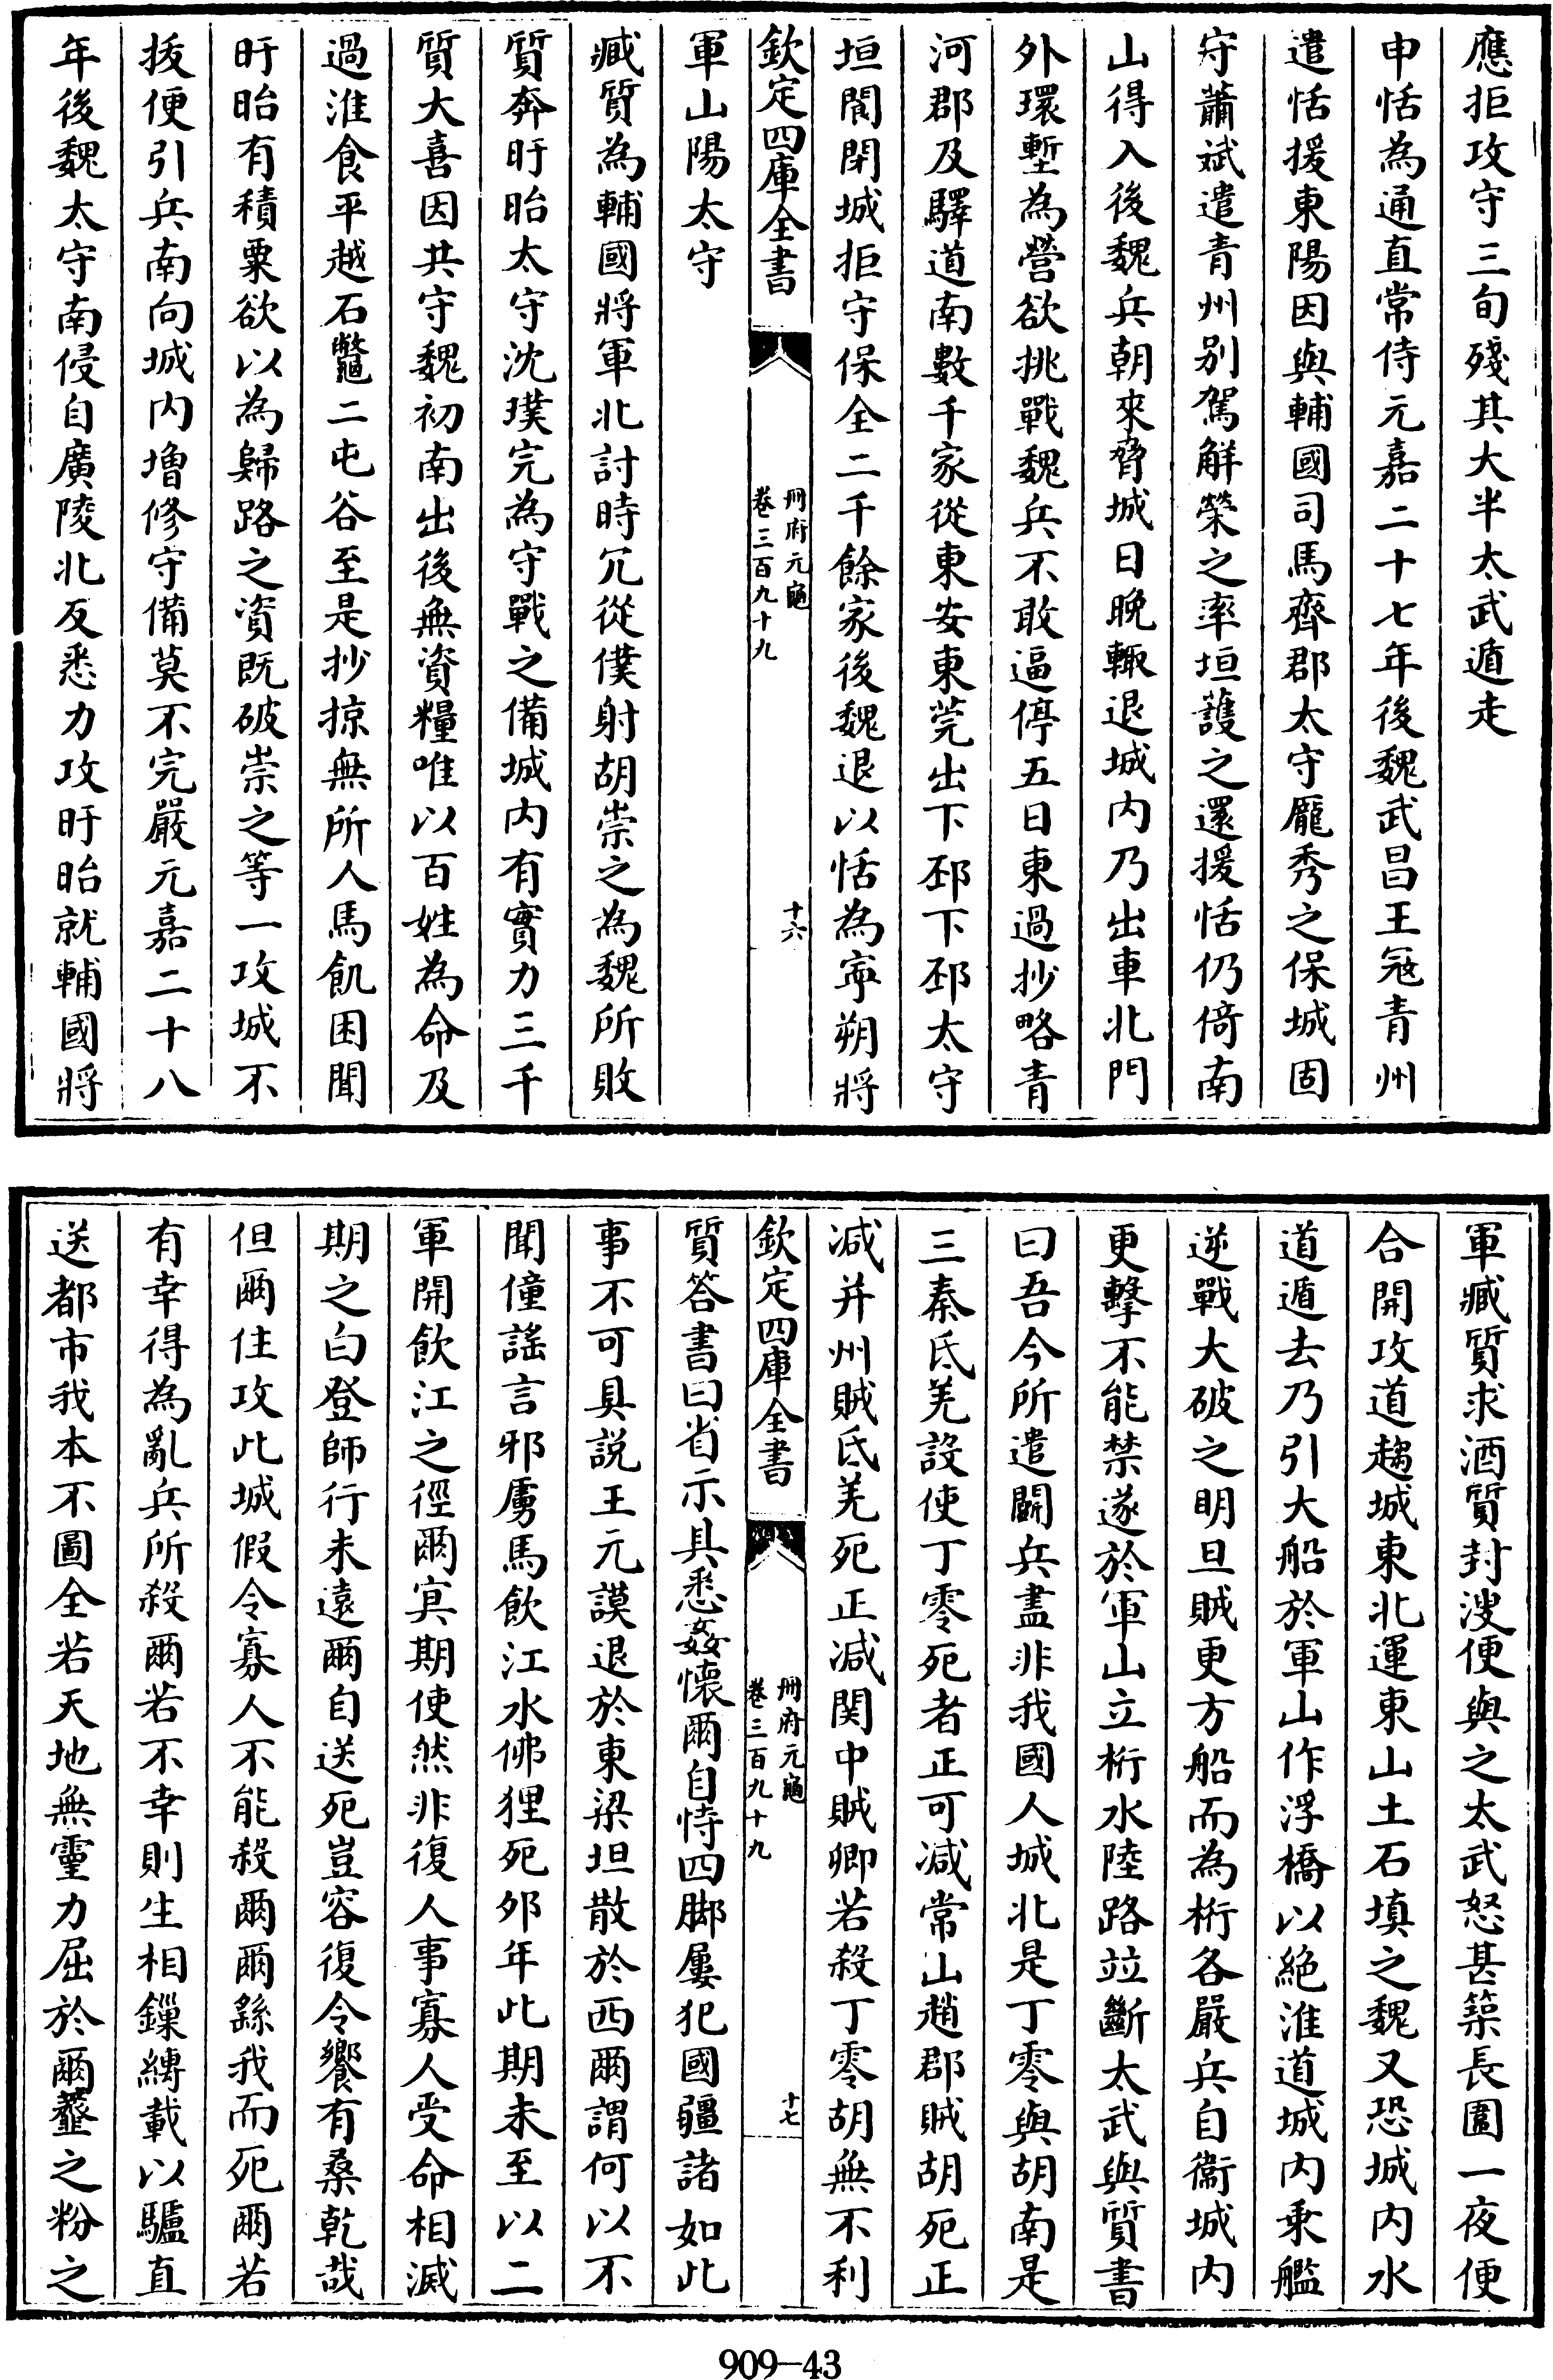 應拒攻守三旬殘其大半太武遁走
申恬為通直常侍元嘉二十七年後魏武昌王宼青州
遣恬援東陽因與輔國司馬齊郡太守龎秀之保城固
守蕭斌遣青州别駕解榮之率垣䕶之還援恬仍倚南
山得入後魏兵朝來脅城日晚輙退城内乃出車北門
外環塹為營欲挑戰魏兵不敢逼停五日東過抄略青
河郡及驛道南數千家從東安東莞出下邳下邳太守
垣閬閉城拒守保全二千餘家後魏退以恬為寧朔將
欽定四庫全書
冊府元龜
卷三百九十九
十六
軍山陽太守
臧質為輔國將軍北討時冗從僕射胡崇之為魏所敗
質奔盱眙太守沈璞完為守戰之備城内有實力三千
質大喜因共守魏初南出後無資糧唯以百姓為命及
過淮食平越石鼈二屯谷至是抄掠無所人馬飢困聞
盱眙有積粟欲以為歸路之資既破崇之等一攻城不
拔便引兵南向城内增修守備莫不完嚴元嘉二十八
年後魏太守南侵自廣陵北反悉力攻盱眙就輔國將
軍臧質求酒質封溲便與之太武怒甚築長圍一夜便
合開攻道趨城東北運東山土石填之魏又恐城内水
道遁去乃引大船於軍山作浮橋以絶淮道城内乘艦
逆戰大破之明旦賊更方船而為桁各嚴兵自衞城内
更擊不能禁遂於軍山立桁水陸路竝斷太武與質書
曰吾今所遣鬭兵盡非我國人城北是丁零與胡南是
三秦氐羌設使丁零死者正可减常山趙郡賊胡死正
减并州賊氐羌死正减関中賊卿若殺丁零胡無不利
欽定四庫全書
冊府元龜
卷三百九十九
十七
質答書曰省示具悉姦懷爾自恃四脚屢犯國疆諸如此
事不可具説王元謨退於東梁坦散於西爾謂何以不
聞僮謡言邪虜馬飲江水佛狸死夘年此期未至以二
軍開飲江之徑爾㝠期使然非復人事寡人受命相滅
期之白登師行未遠爾自送死豈容復令饗有桑乾哉
但爾住攻此城假令寡人不能殺爾爾繇我而死爾若
有幸得為亂兵所殺爾若不幸則生相鏁縛載以驢直
送都市我本不圖全若天地無靈力屈於爾虀之粉之
909-43